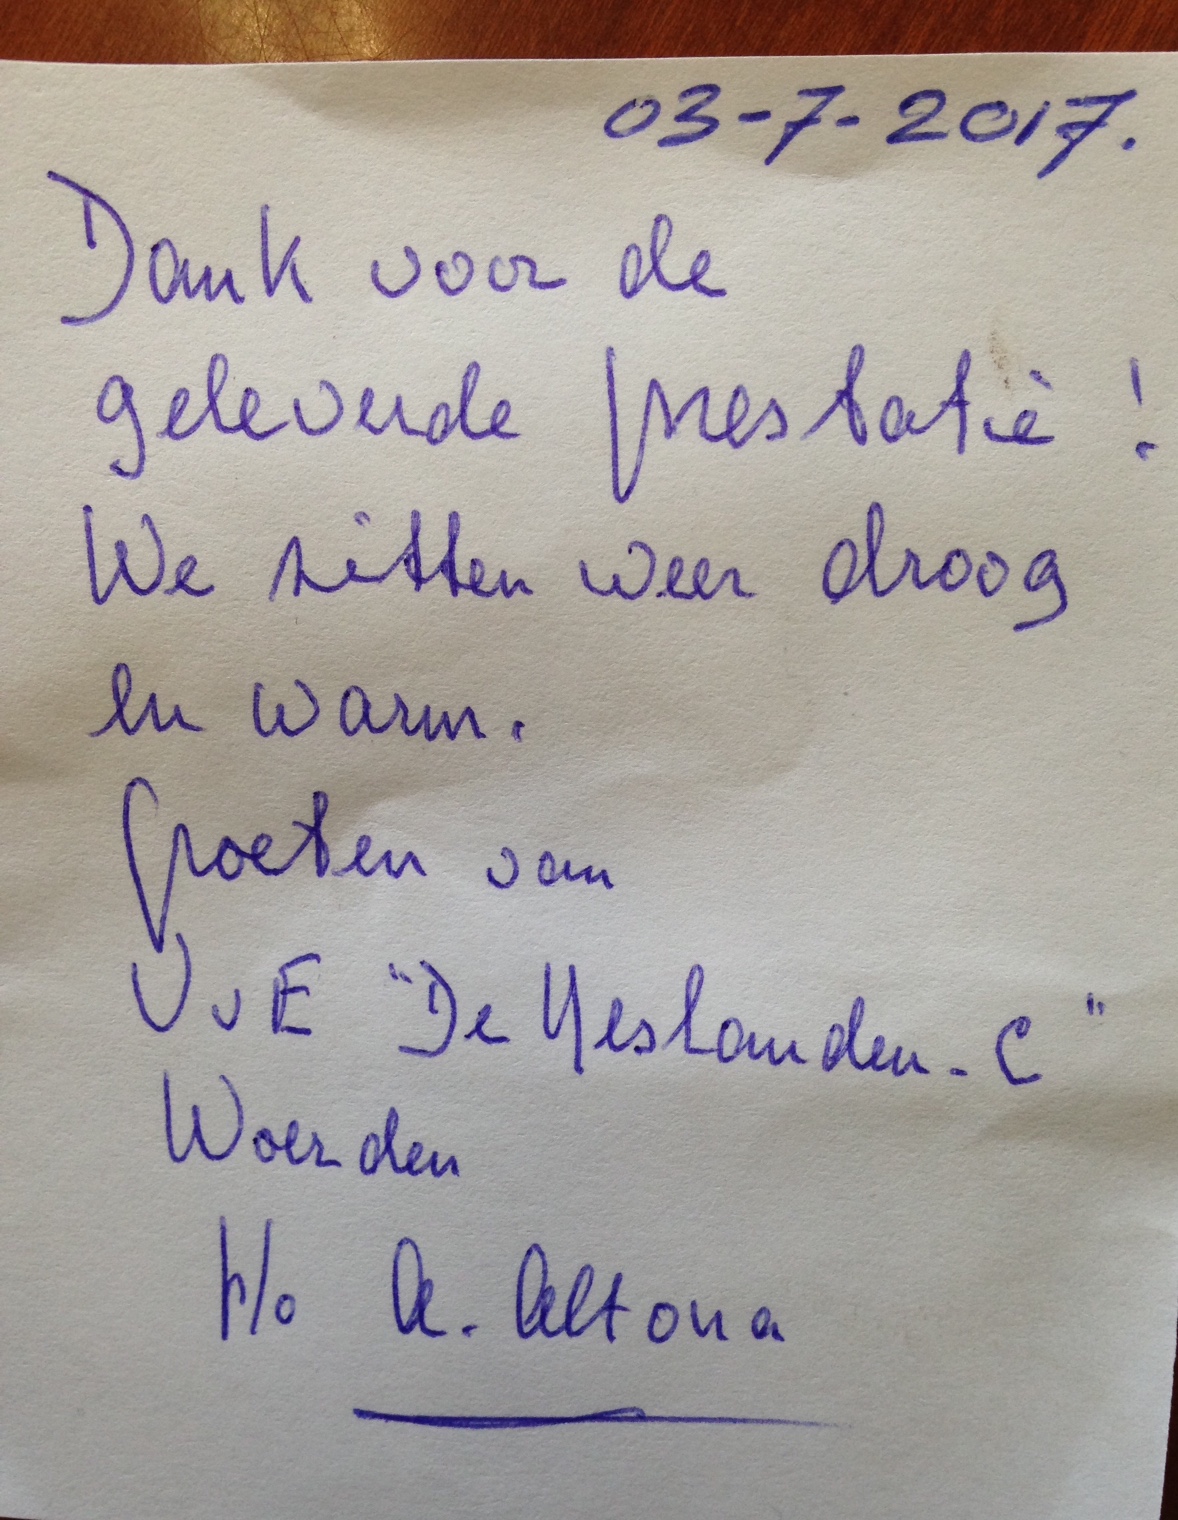 03-7-2017.
Dank voor de
geleverde prestatie !
We zitten weer droog
en warm.
Groeten van
VvE "De Yeslanden-C"
Woerden
A. Altona